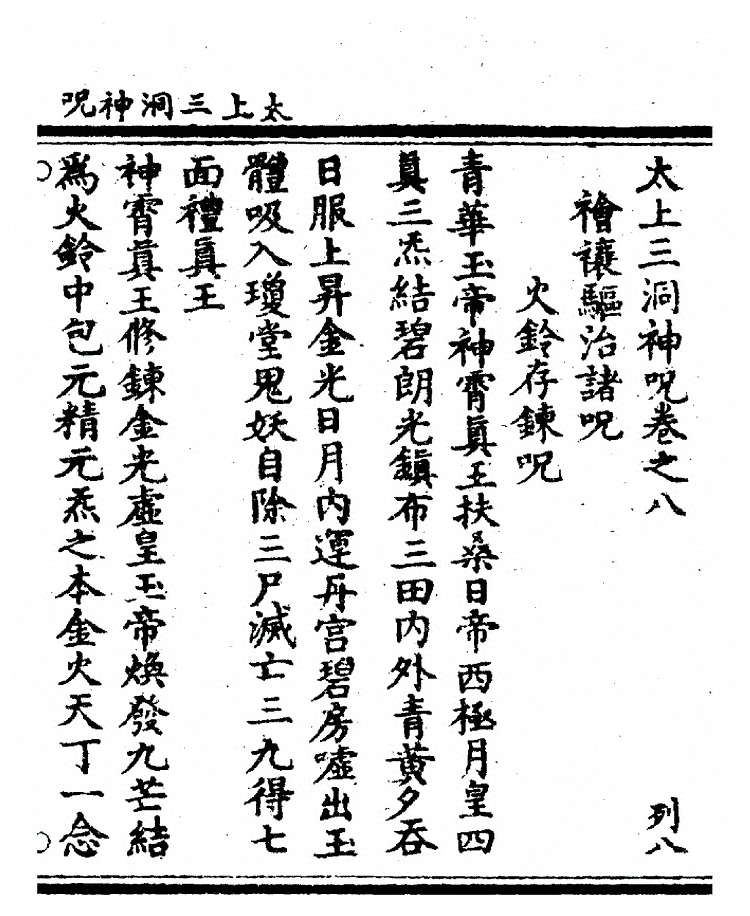 太上三洞神呪
太上三洞神呪卷之八 列八
禬禳驅治諸呪
火鈴存鍊呪
青華玉帝神霄眞王扶桑日帝西極月皇四
眞三炁結碧朗光鎮布三田内外青黃夕吞
日服上昇金光日月内運丹宮碧房噓出玉
體吸入瓊堂鬼妖自除三尸滅亡三九得七
面禮眞王
神霄眞王修鍊金光虛皇玉帝煥發九芒結
爲火鈴中包元精元炁之本金火天丁一念